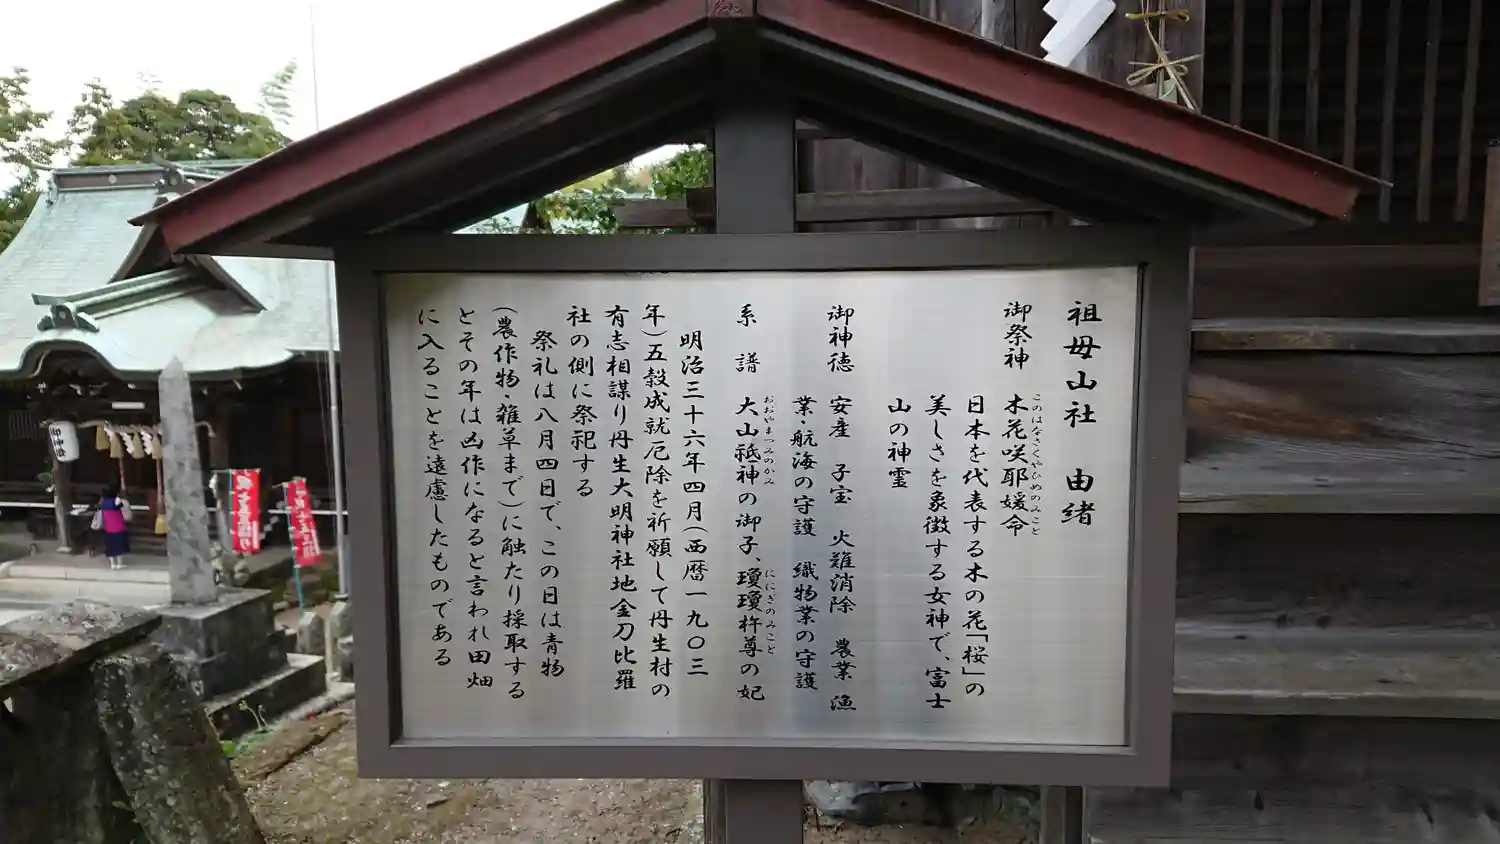 祖母山社 由緒
御祭神 木花咲耶媛命
このはなさくやひめのみこと
日本を代表する木の花「桜」の
美しさを象徴する女神で、富士
山の神霊
御神徳 安産 子宝 火難消除 農業 漁
業・航海の守護 織物業の守護
系譜 大山祇神の御子、瓊瓊杵尊の妃
おおやまつみのかみ
ににぎのみこと
明治三十六年四月(西暦一九〇三
年)五穀成就厄除を祈願して丹生村の
有志相謀り丹生大明神社地金刀比羅
社の側に祭祀する
祭礼は八月四日で、この日は青物
(農作物・雑草まで)に触たり採取する
とその年は凶作になると言われ田畑
に入ることを遠慮したものである